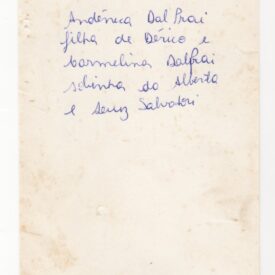 Andénica Dal Prai
filha de Dérico e
Carmelina Dalprai
sobinha do Alberto
e Salvatori